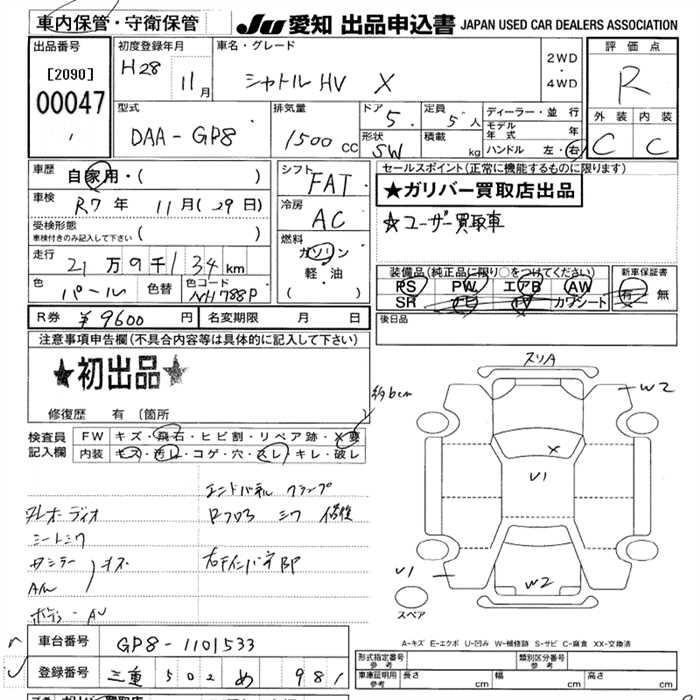 車内保管・守衛保管
JU 愛知 出品申込書 JAPAN USED CAR DEALERS ASSOCIATION
出品番号
[2090]
00047
初度登録年月
H28 11月
車名・グレード
シャトル HV X
2WD
・
4WD
評価点
R
型式
DAA-GP8
排気量
1500 cc
ドア
5
定員
5人
形状
SW
積載
kg
ディーラー・並行
モデル年式 年
ハンドル 左・右
外装 内装
C C
車歴
自家用・( )
車検
R7年 11月(29日)
受検形態
車検付きのみ記入して下さい ( )
走行
21万9千134km
色
パール
色替
色コード
NH788P
シフト
FAT
冷房
AC
燃料
ガソリン
軽・油
( )
セールスポイント(正常に機能するものに限ります)
★ガリバー買取店出品
☆ユーザー買取車
装備品(純正品に限り○をつけてください)
PS PW エアB AW
SR カワシート
新車保証書
有・無
後日品
R券 ¥9600円
名変期限 月 日
注意事項申告欄(不具合内容等は具体的に記入して下さい)
★初出品★
修復歴 有 〔箇所
約6cm
検査員
記入欄
FW キズ・飛石・ヒビ割・リペア跡・X要
内装 キズ・汚レ・コゲ・穴・スレ・キレ・破レ
エンドパネル クランプ
フロア シワ 修復
シートシワ
キズ
A/L
スリA
W2
X
V1
V1
W2
スペア
A-キズ E-エクボ U-凹み W-補修跡 S-サビ C-腐食 XX-交換済
車台番号 GP8-1101533
登録番号 三重 502 め 981
形式指定番号
参考
類別区分番号
参考
車庫証明用
参考
長さ cm 幅 cm 高さ cm
ガリバー買取店